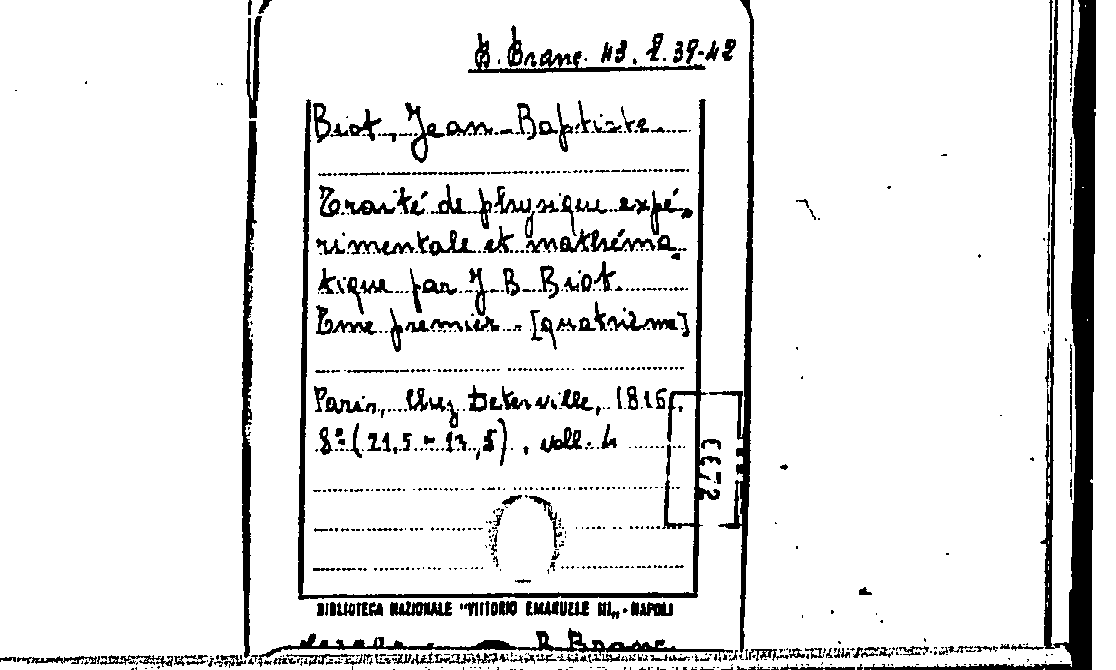 B. Branc. 43. L. 39-42
Biot, Jean-Baptiste.
Traité de physique expé-
rimentale et mathéma-
tique par J. B. Biot.
Tome premier - [quatrième]
Paris, Chez Deterville, 1816.
8º (21,5 × 13,5), voll. 4
BIBLIOTECA NAZIONALE "VITTORIO EMANUELE III„ - NAPOLI
B. Branc.